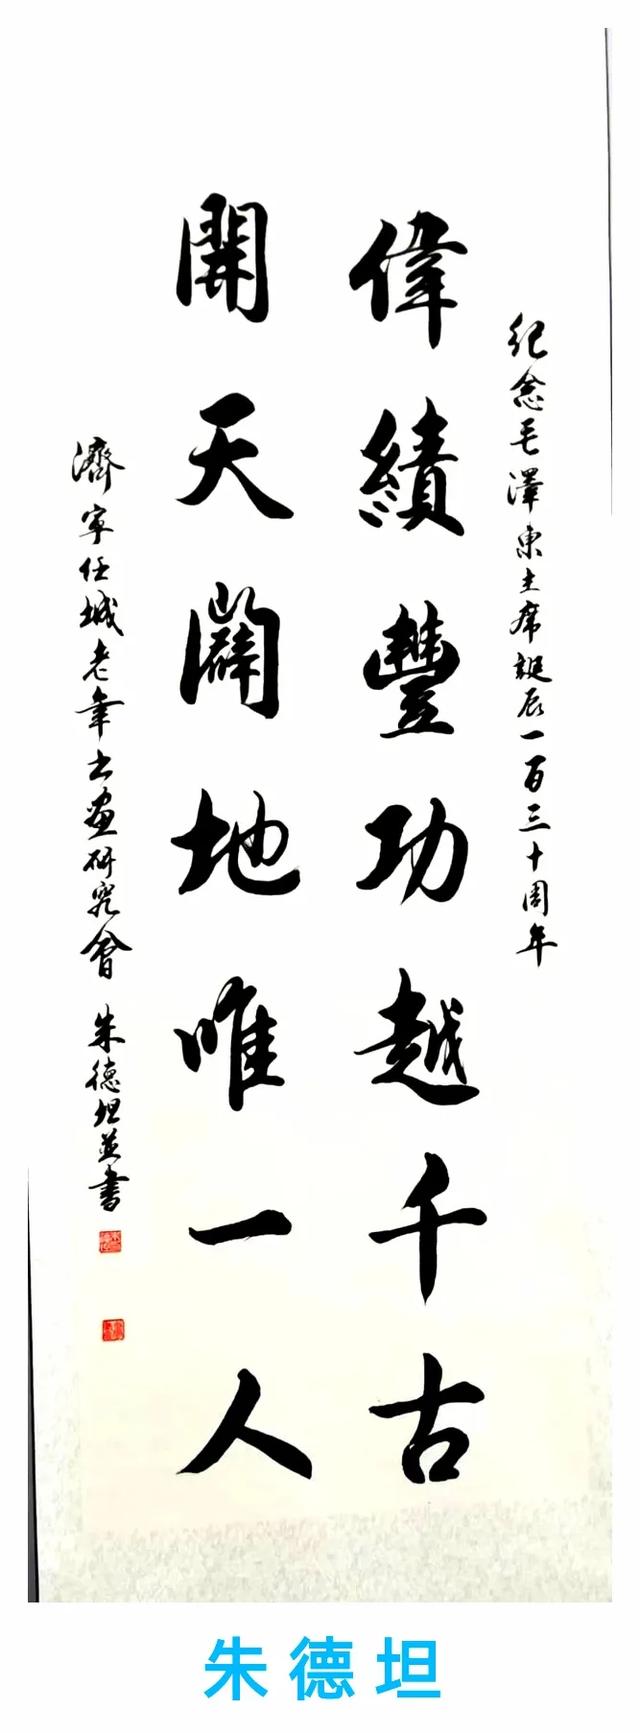 紀念毛澤東主席誕辰一百三十周年
偉績豐功越千古
開天闢地唯一人
濟寧任城老年书画研究會 朱德坦並書
朱德坦